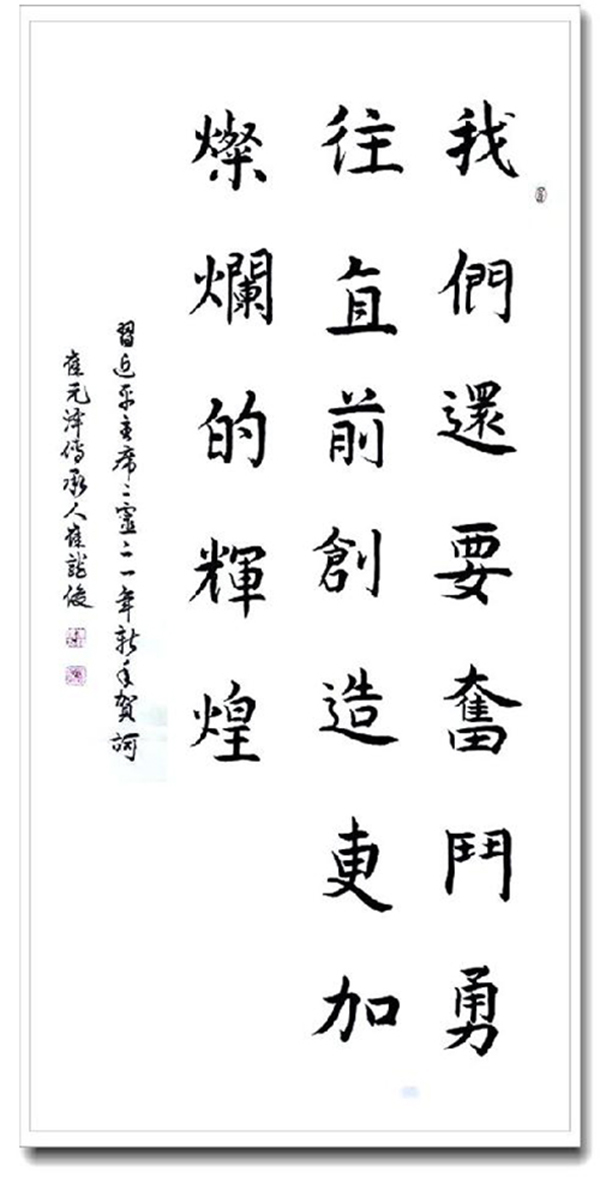 我們還要奮鬥勇
往直前創造更加
燦爛的輝煌
習近平主席二零二一年新年賀詞
崔元泽傳承人崔龍俊